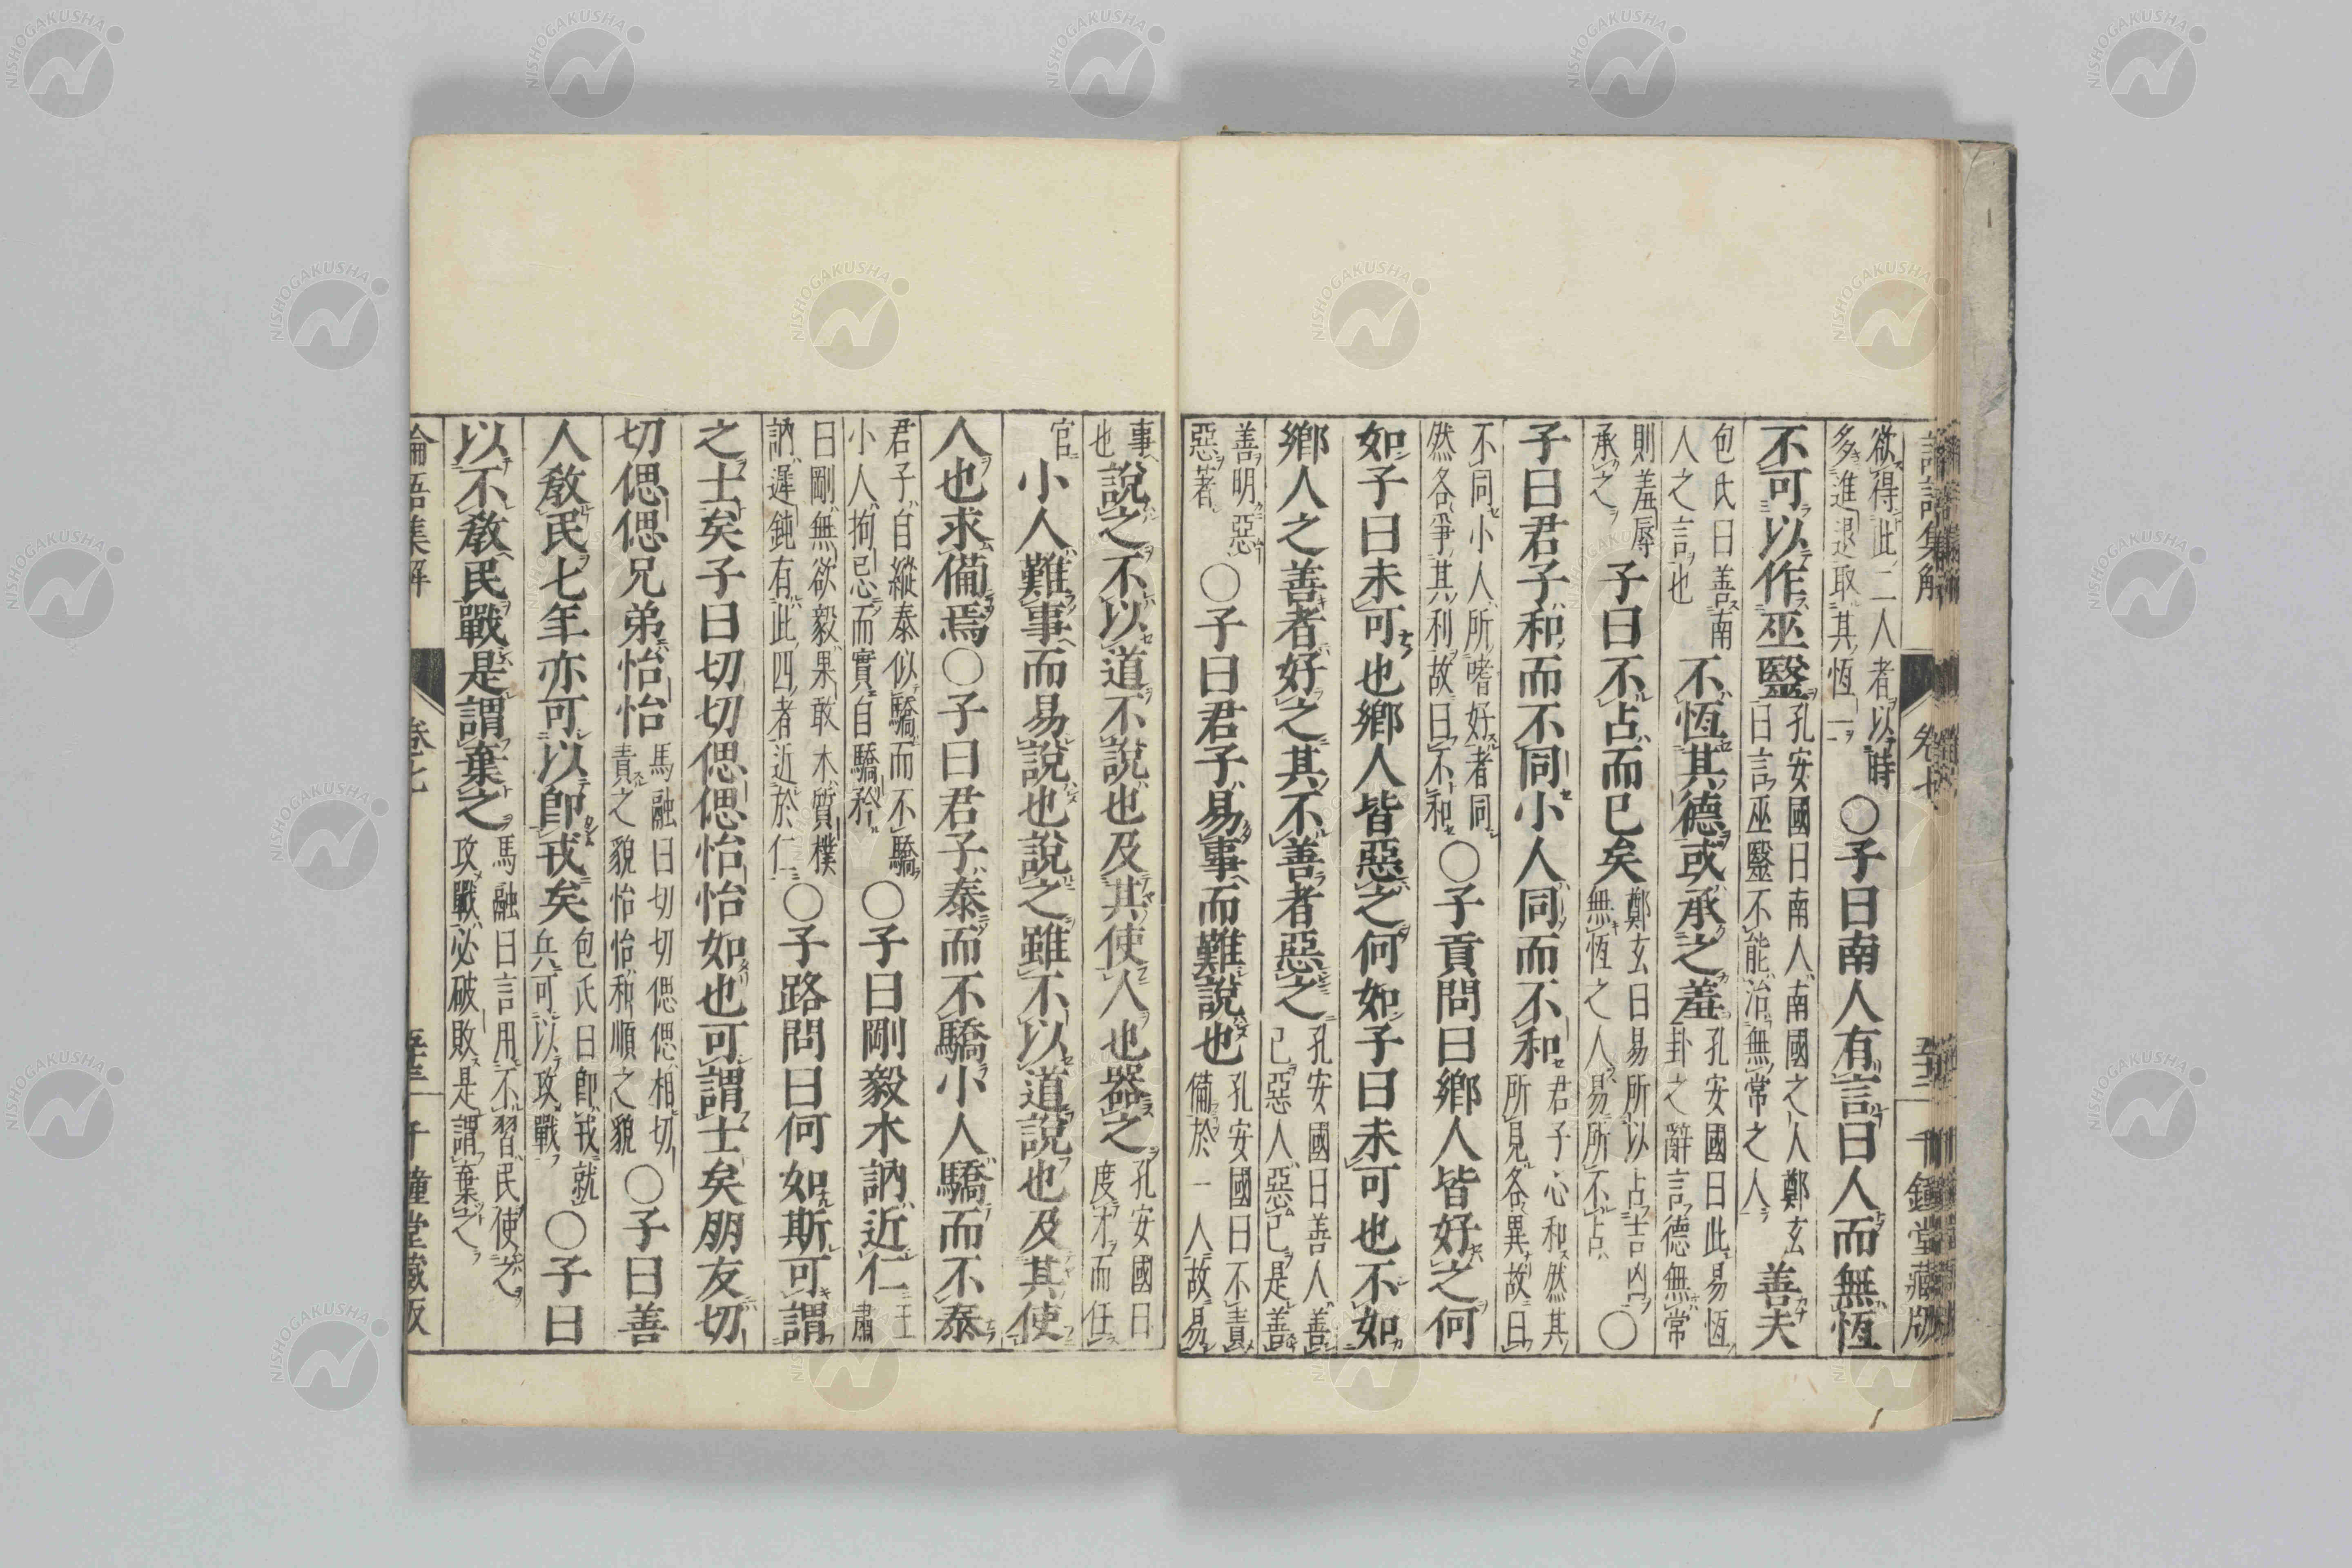 論語集解 卷七 千鍾堂藏版
欲得此二人者以時多進退取其恆一〇子曰南人有言曰人而無恆
不可以作巫毉孔安國曰南人南國之人鄭玄曰言巫毉不能治無常之人善夫
包氏曰善南人之言也不恆其德或承之羞孔安國曰此易恆卦之辭言德無常
則羞辱承之子曰不占而已矣鄭玄曰易所以占吉凶無恆之人易所不占〇
子曰君子和而不同小人同而不和君子心和然其所見各異故曰
不同小人所嗜好者同然各爭其利故曰不和〇子貢問曰鄉人皆好之何
如子曰未可也鄉人皆惡之何如子曰未可也不如
鄉人之善者好之其不善者惡之孔安國曰善人善己惡人惡己是善
善明惡惡著〇子曰君子易事而難說也孔安國曰不責備於一人故易
事也說之不以道不說也及其使人也器之孔安國曰度才而任
官小人難事而易說也說之雖不以道說也及其使
人也求備焉〇子曰君子泰而不驕小人驕而不泰
君子自縱泰似驕而不驕小人拘忌而實自驕矜〇子曰剛毅木訥近仁王肅
曰剛無欲毅果敢木質樸訥遲鈍有此四者近於仁〇子路問曰何如斯可謂
之士矣子曰切切偲偲怡怡如也可謂士矣朋友切
切偲偲兄弟怡怡馬融曰切切偲偲相切責之貌怡怡和順之貌〇子曰善
人敎民七年亦可以卽戎矣包氏曰卽戎就兵可以攻戰〇子曰
以不敎民戰是謂棄之馬融曰言用不習民使之攻戰必破敗是謂棄之
論語集解 卷七 千鍾堂藏版
NISHOGAKUSHA